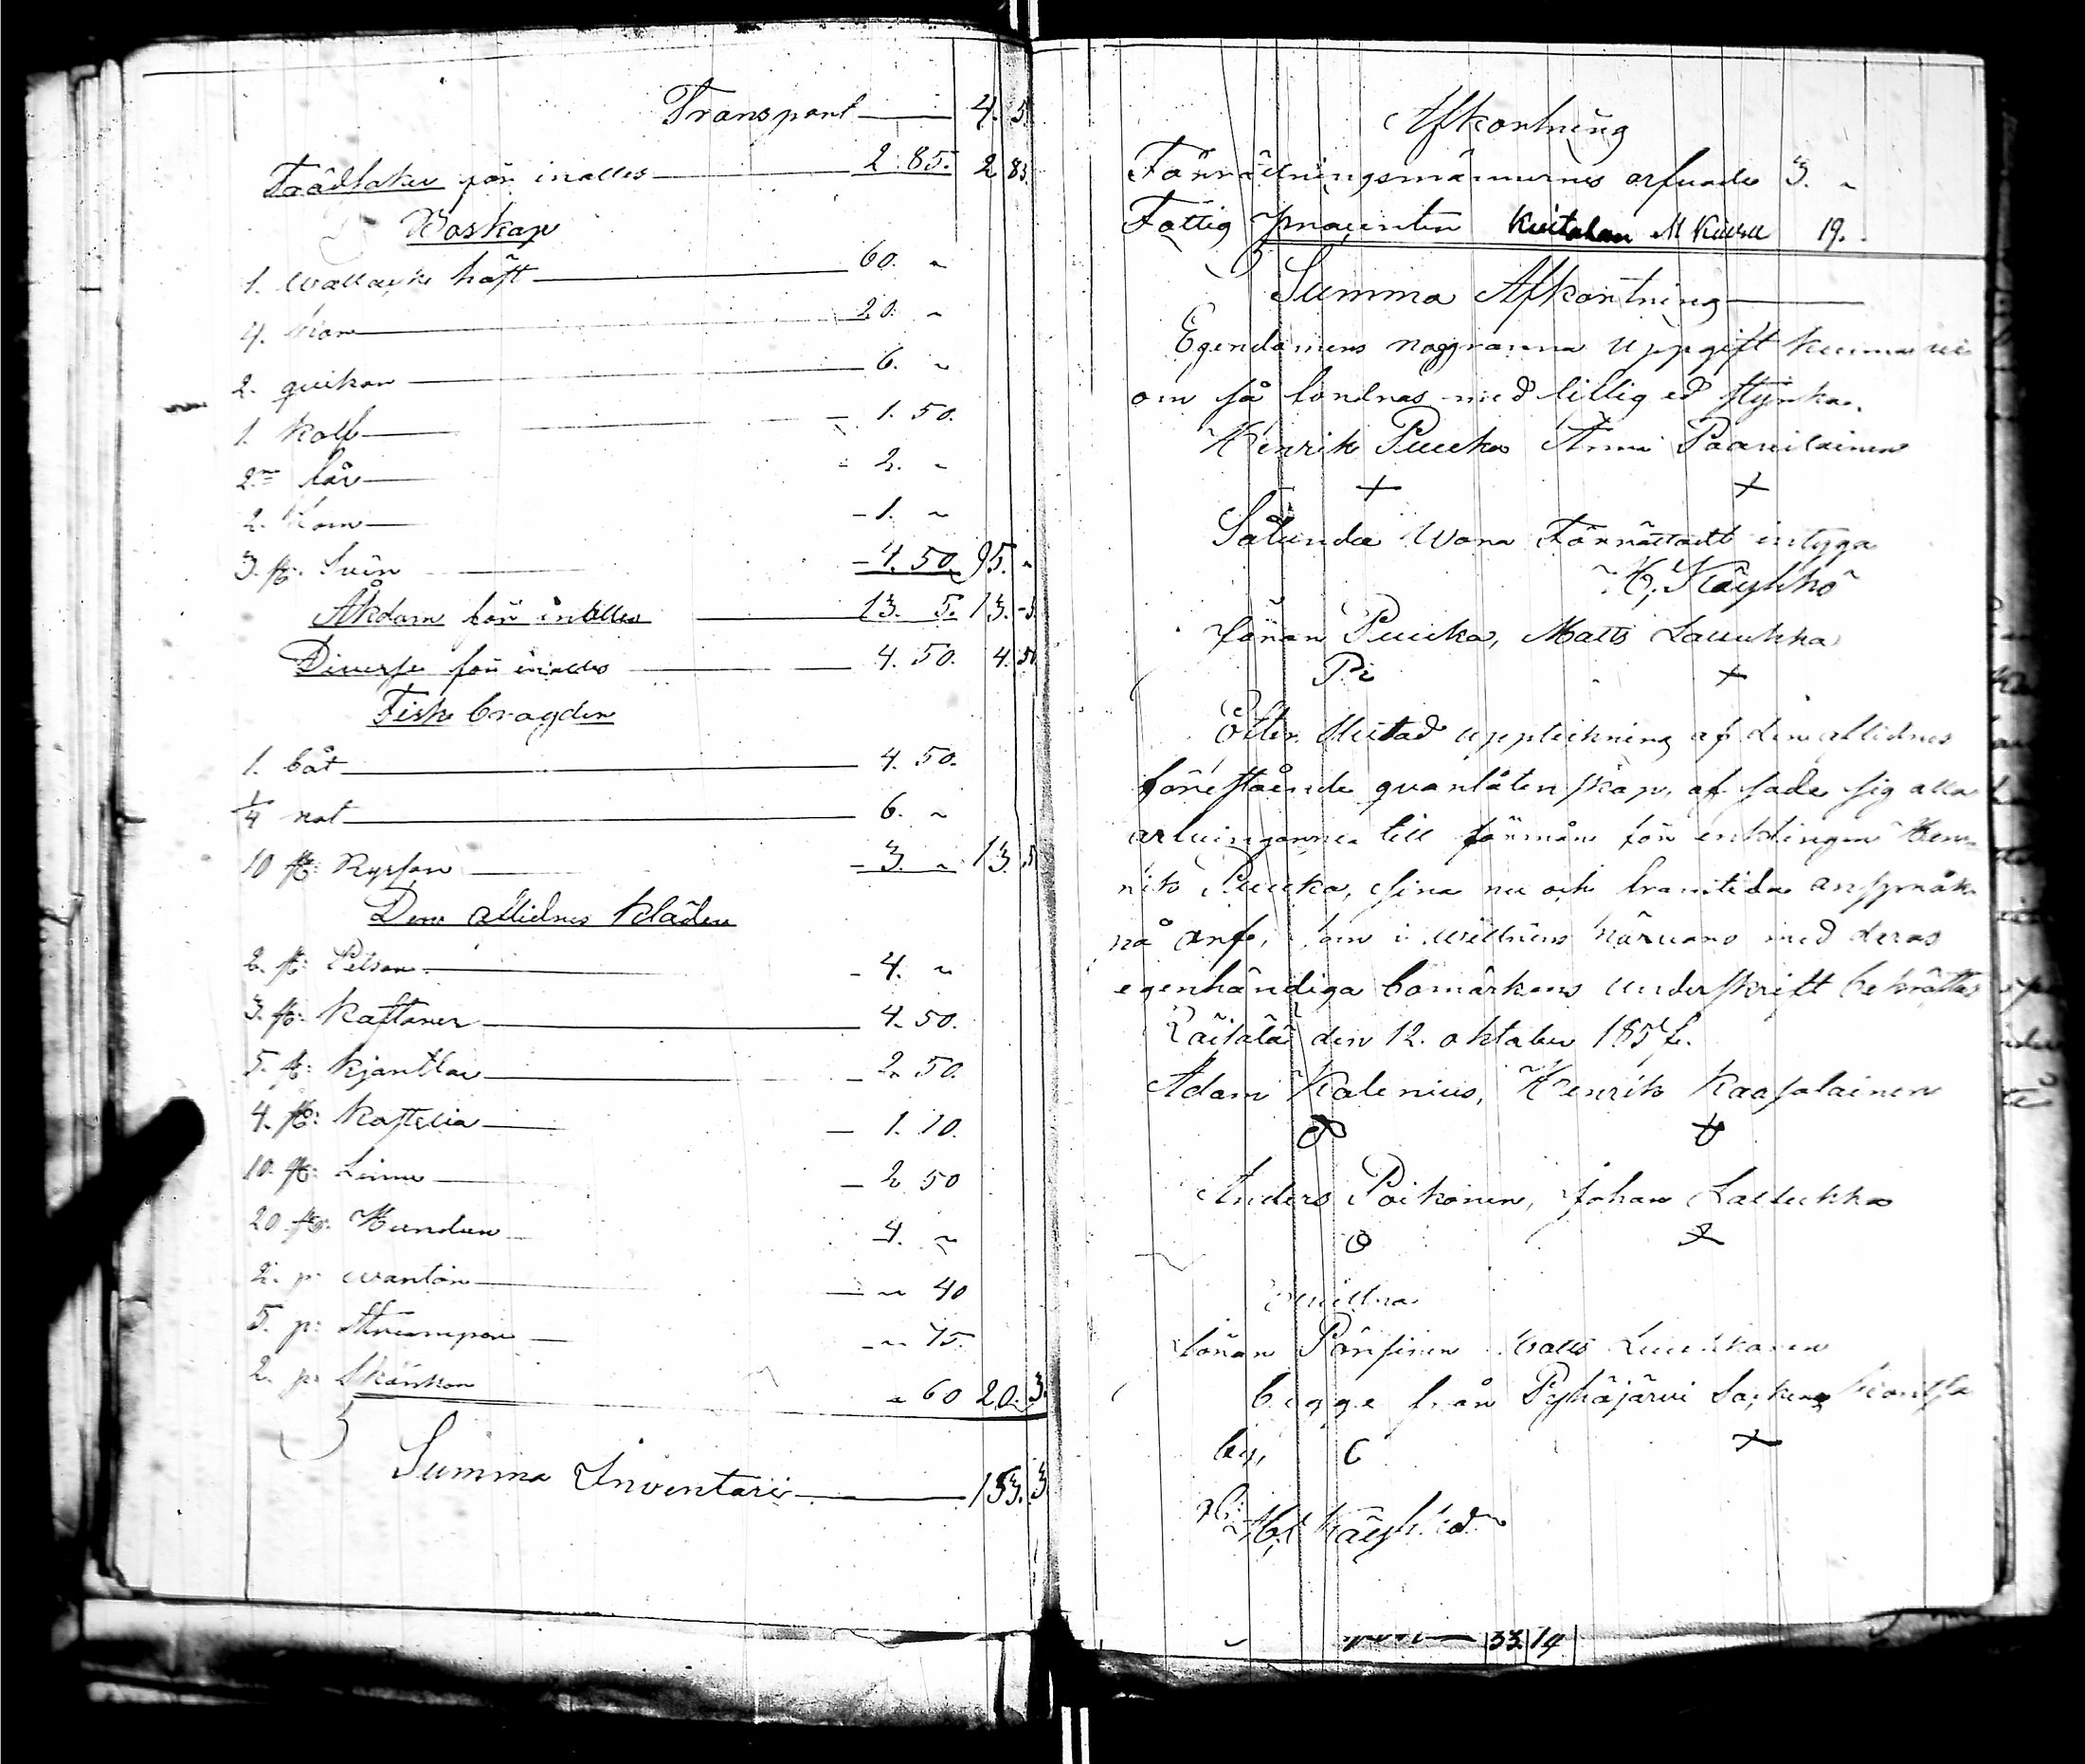 Transport — 4. 5.
Trädsaker för inalles — 2. 85. 2 85.
Boskap
1. Wallack häst — 60. "
4. kor — 20. "
2. qvikor — 6. "
1. kalf — 1. 50.
2 får — 2. "
2. lam — 1. "
3. st. Svin — 4. 50. 95. "
Åkdom för inalles — 13. 5. 13. 5
Diverse för inalles — 4. 50. 4. 50
Fiske bragder
1. båt — 4. 50.
1/4 not — 6. "
10 st: Ryssor — 3. " 13. 5
Den aflidnes kläder
2. st: Pelsar — 4. "
3. st: Kaftaner — 4. 50.
5. st: kjortlar — 2. 50.
4. st: Kostulia — 1. 10.
10. st: Linne — 2 50
20 st: Hundun — 4. "
2. p: wantar — " 40
5. p: strumpor — " 75.
2. p: skänkor " 60 20. 3
Summa Inventarii — 153. 3
Afkortning
Förrättningsmännernes arfuade 3. "
Fattig procenten Kuitataan M Kiuru 19.
Summa Afkortning —
Egendomens noggranna uppgift kunna vi
om så fordras med lillig ed styrka.
Henrik Puukka Anna Paavilainen
+ +
Sålunda Wara Förrättadt intyga
H. Käyhkö
Jöran Puukka, Matts Laukka
Pi +
Efter slutad uppteckning af den aflidnes
förestående qvarlåtenskap, af sade sig alla
arfvingarna till förmån för enklingen Hen-
rik Puukka, sina nu och framtida anspråk
på arf, som i wittnens närvaro med deras
egenhändiga bomärkens underskrift bekräftas
Räisälä den 12. oktober 185
Adam Kalenius, Henrik Kaasalainen
Anders Poikonen, Johan Laukka
wittna
Jöran Pärssinen Matts Luukkanen
begge från Pyhäjärvi Socken
by, C +
H. Käyhkö
33. 14